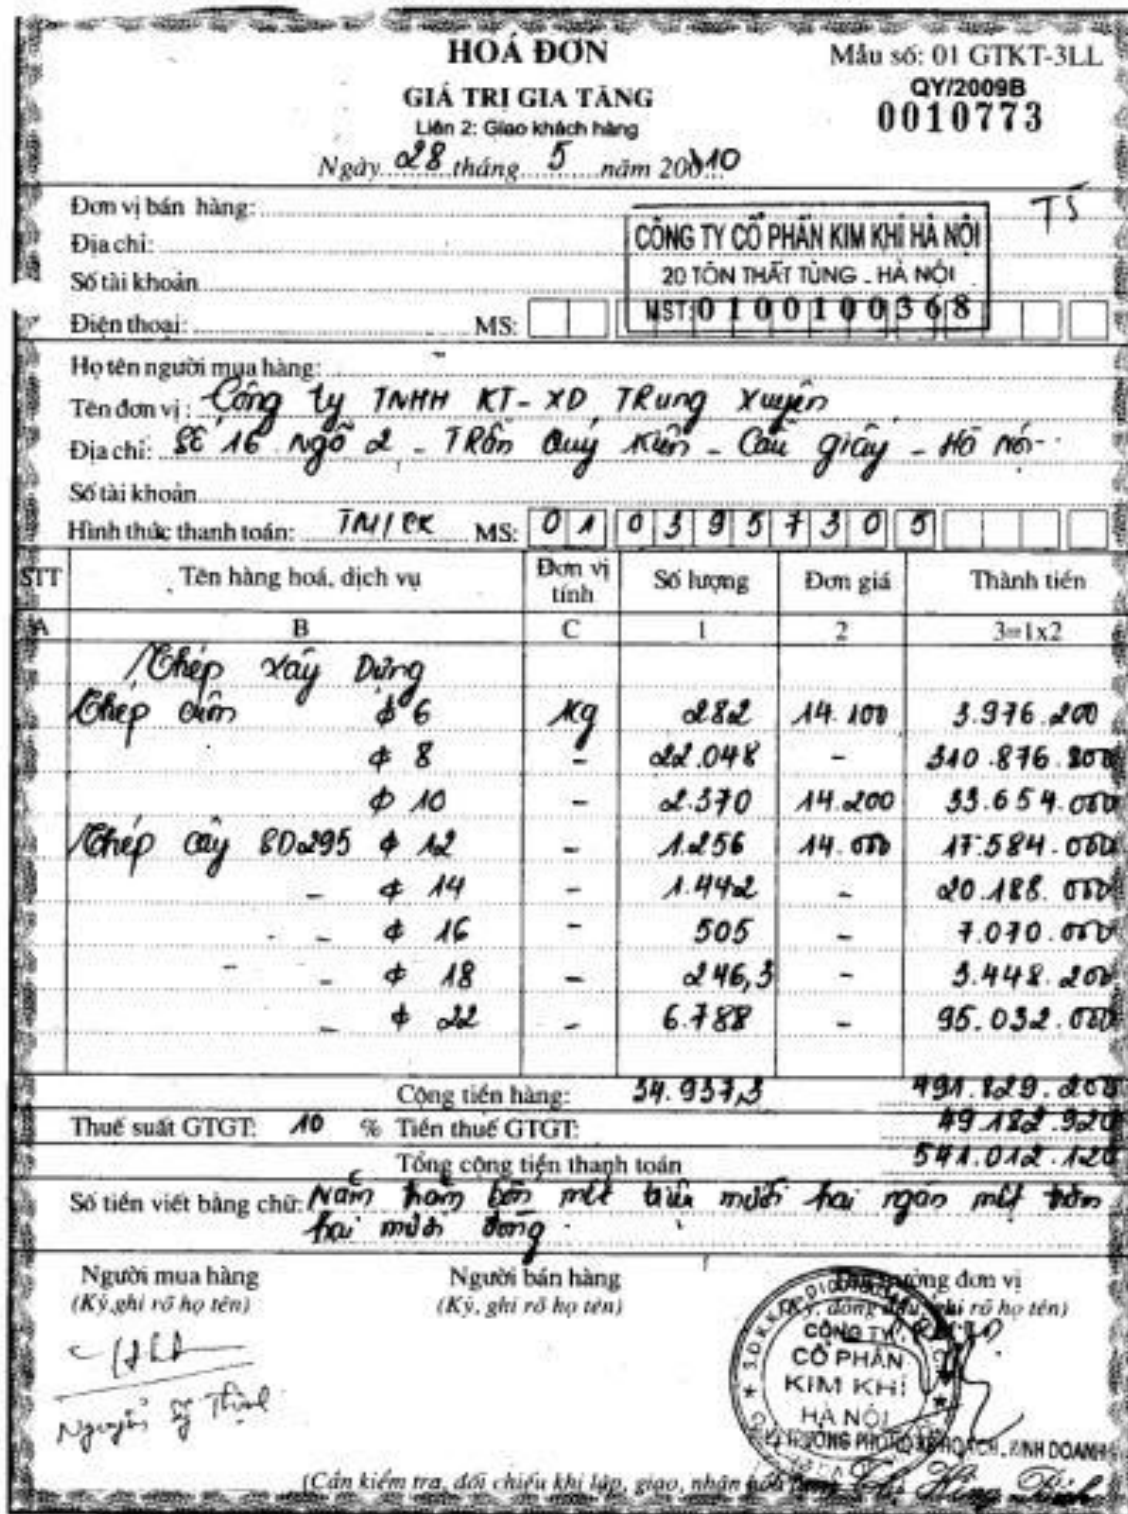 HOÁ ĐƠN
Mẫu số: 01 GTKT-3LL
GIÁ TRỊ GIA TĂNG
QY/2009B
Liên 2: Giao khách hàng
0010773
Ngày 28 tháng 5 năm 200 10
Đơn vị bán hàng:
TS
Địa chỉ:
CÔNG TY CỔ PHẦN KIM KHÍ HÀ NỘI
Số tài khoản
20 TÔN THẤT TÙNG - HÀ NỘI
Điện thoại: MS:
MST: 0100100368
Họ tên người mua hàng:
Tên đơn vị: Công ty TNHH KT-XD Trung Xuyên
Địa chỉ: Số 16 ngõ 2 - Trần Quý Kiên - Cầu giấy - Hà Nội
Số tài khoản
Hình thức thanh toán: TM/CK MS: 01 0395730 5
STT Tên hàng hoá, dịch vụ Đơn vị tính Số lượng Đơn giá Thành tiền
A B C 1 2 3=1x2
Thép xây Dựng
Thép cuộn φ 6 Kg 282 14.100 3.976.200
φ 8 - 22.048 - 310.876.800
φ 10 - 2.370 14.200 33.654.000
Thép cây SD295 φ 12 - 1.256 14.000 17.584.000
- φ 14 - 1.442 - 20.188.000
- - φ 16 - 505 - 7.070.000
- - φ 18 - 246,3 - 3.448.200
- φ 22 - 6.788 - 95.032.000
Cộng tiền hàng: 34.937,3 491.829.200
Thuế suất GTGT: 10 % Tiền thuế GTGT: 49.182.920
Tổng cộng tiền thanh toán 541.012.120
Số tiền viết bằng chữ: Năm trăm bốn mốt triệu mười hai ngàn một trăm
hai mươi đồng.
Người mua hàng Người bán hàng Thủ trưởng đơn vị
(Ký, ghi rõ họ tên) (Ký, ghi rõ họ tên) (Ký, đóng dấu, ghi rõ họ tên)
CÔNG TY
CỔ PHẦN
KIM KHÍ
HÀ NỘI
Nguyễn Sỹ
TRƯỞNG PHÒNG KẾ HOẠCH, KINH DOANH
(Cần kiểm tra, đối chiếu khi lập, giao, nhận hoá